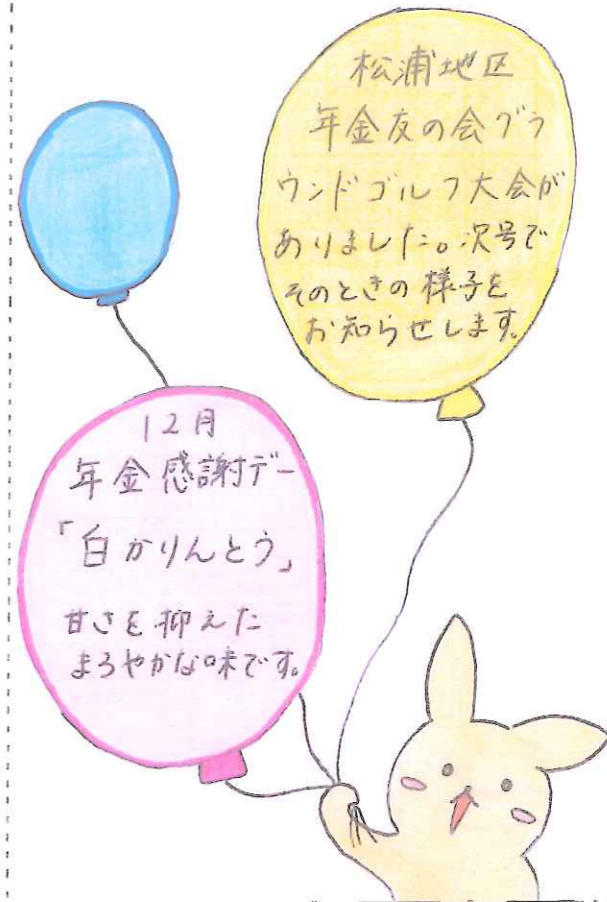 松浦地区
年金友の会グラ
ウンドゴルフ大会が
ありました。次号で
そのときの様子を
お知らせします。
12月
年金感謝デー
「白かりんとう」
甘さを抑えた
まろやかな味です。